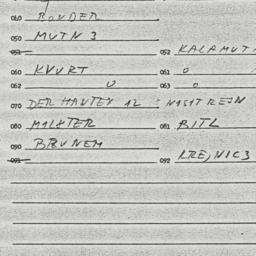 040 BONDER
050 MUTN 3
051 052 KALAMUT
060 KVURT 061 O
062 U 063 O
070 DER HAUTEN 12 : NAGIT REJN
080 MALSTER 081 BITL
090 BRUNEM
091 092 KREJNIC3